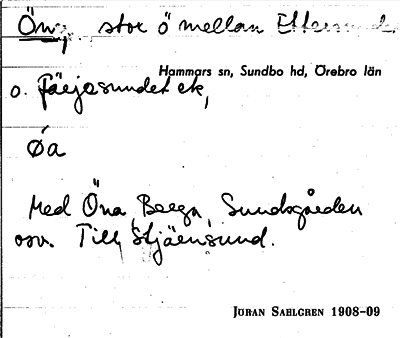 Ön, stor ö mellan
Hammars sn, Sundbo hd, Örebro län
o. Färjesundet ek,
øa
Med Öna, Berga, Sundsgården
osv. Till Stjärnsund.
JÖRAN SAHLGREN 1908-09